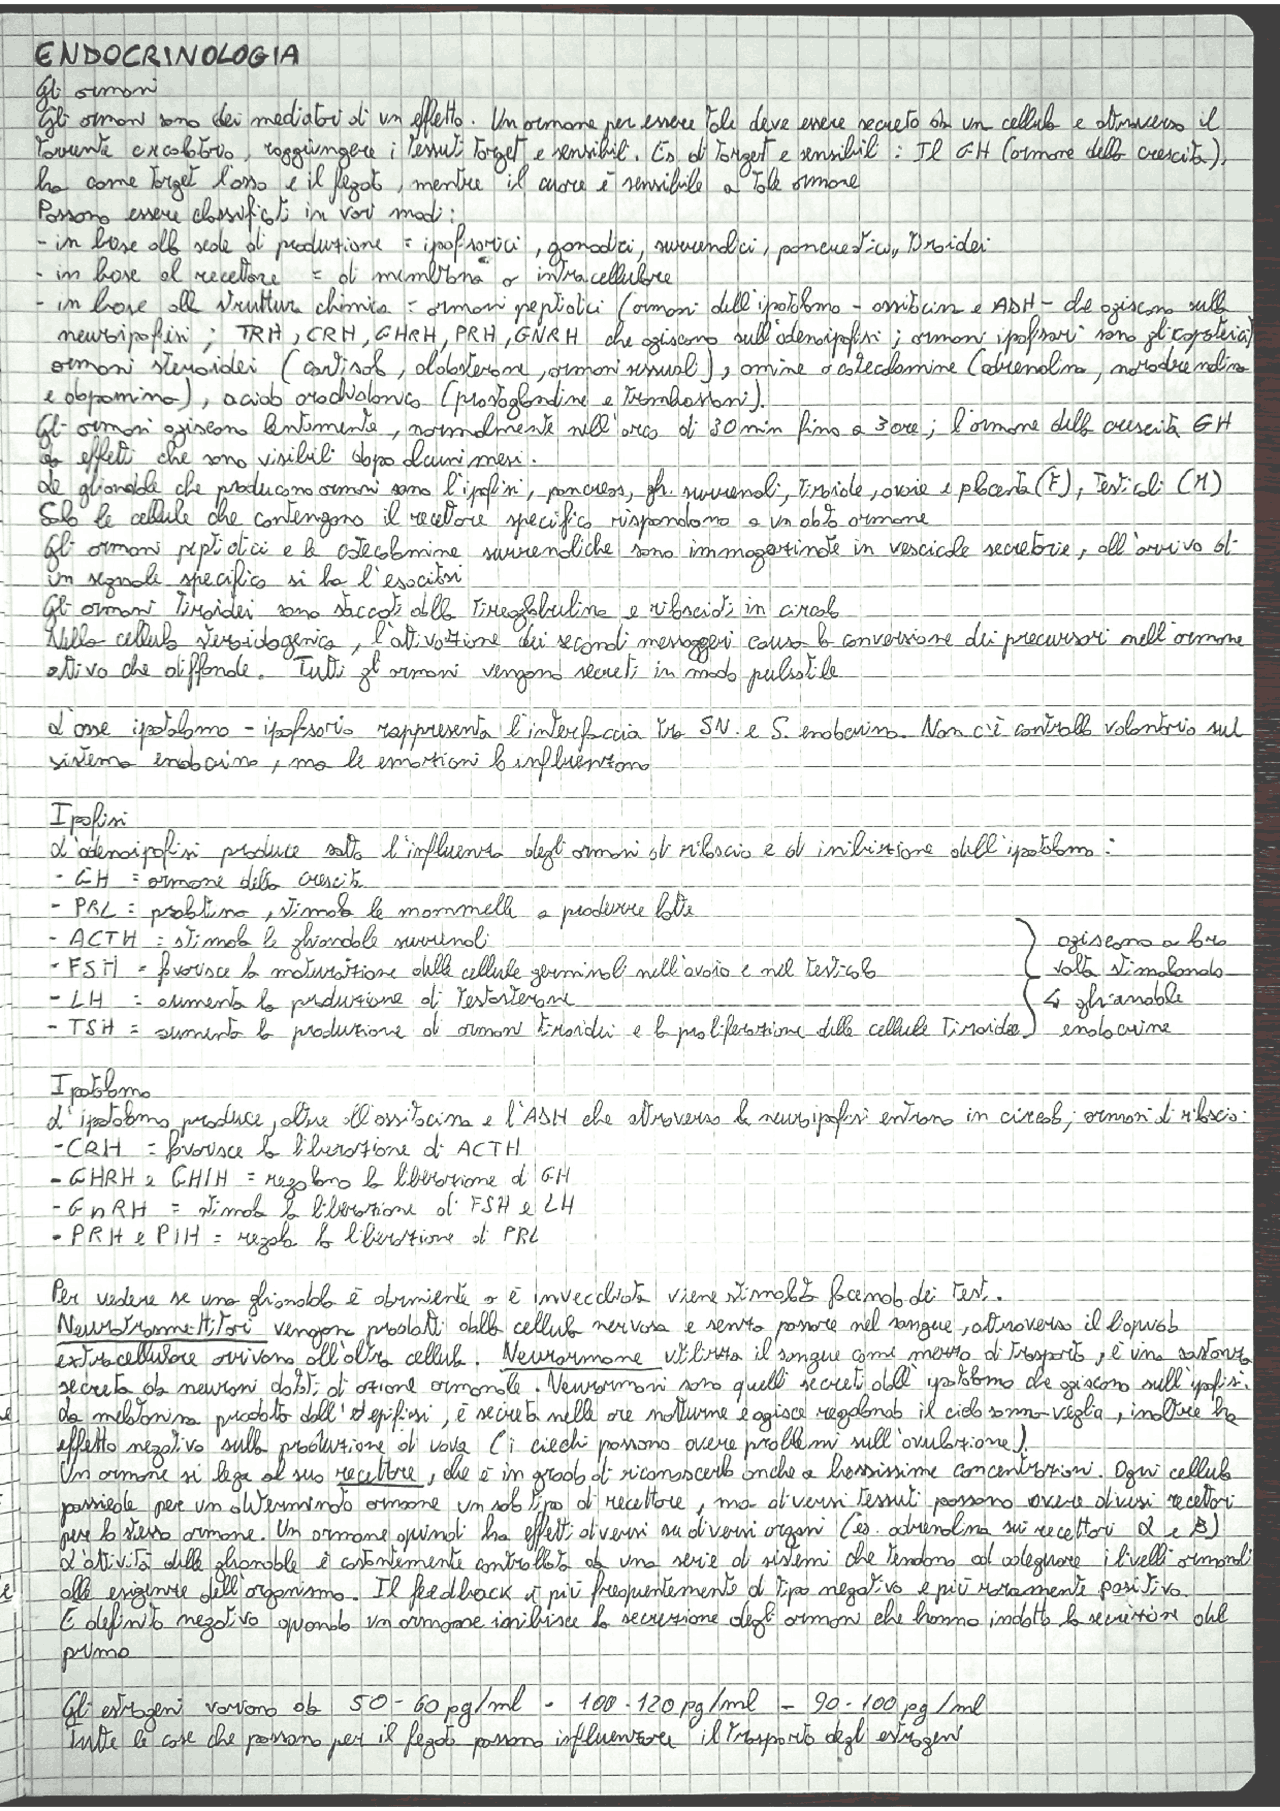 ENDOCRINOLOGIA
Gli ormoni
Gli ormoni sono dei mediatori di un effetto. Un ormone per essere tale deve essere secreto da un cellula e attraverso il
torrente circolatorio, raggiungere i tessuti target e sensibili. Es di target e sensibili : Il GH (ormone della crescita),
ha come target l'osso e il fegato, mentre il cuore è sensibile a tale ormone
Possono essere classificati in vari modi:
- in base alla sede di produzione = ipofisarici, gonadici, surrenalici, pancreatici, tiroidei
- in base al recettore = di membrana o intracellulare
- in base alla struttura chimica = ormoni peptidici (ormoni dell'ipotalamo - ossitocina e ADH - che agiscono sulla
neuroipofisi ; TRH, CRH, GHRH, PRH, GNRH che agiscono sull'adenoipofisi ; ormoni ipofisari sono glicoproteici)
ormoni steroidei (cortisolo, aldosterone, ormoni sessuali), amine o catecolamine (adrenalina, noradrenalina
e dopamina), acido arachidonico (prostaglandine e trombossani).
Gli ormoni agiscono lentamente, normalmente nell'arco di 30 min fino a 3 ore ; l'ormone della crescita GH
da effetti che sono visibili dopo alcuni mesi.
Le ghiandole che producono ormoni sono l'ipofisi, pancreas, gh. surrenali, tiroide, ovaie e placenta (F), testicoli (M)
Solo le cellule che contengono il recettore specifico rispondono a un dato ormone
Gli ormoni peptidici e le catecolamine surrenaliche sono immagazzinate in vescicole secretorie, all'arrivo di
un segnale specifico si ha l'esocitosi
Gli ormoni tiroidei sono staccati dalla tireoglobulina e rilasciati in circolo
Nella cellula steroidogenica, l'attivazione dei secondi messaggeri causa la conversione dei precursori nell'ormone
attivo che diffonde. Tutti gli ormoni vengono secreti in modo pulsatile
L'asse ipotalamo - ipofisario rappresenta l'interfaccia tra SN. e S. endocrino. Non c'è controllo volontario sul
sistema endocrino, ma le emozioni lo influenzano
Ipofisi
L'adenoipofisi produce sotto l'influenza degli ormoni di rilascio e di inibizione dell'ipotalamo :
- GH = ormone della crescita
- PRL = prolattina, stimola le mammelle a produrre latte
- ACTH = stimola le ghiandole surrenali
- FSH = favorisce la maturazione delle cellule germinali nell'ovaio e nel testicolo
- LH = aumenta la produzione di testosterone
- TSH = aumenta la produzione di ormoni tiroidei e la proliferazione delle cellule tiroidee
agiscono a loro
volta stimolando
4 ghiandole
endocrine
Ipotalamo
L'ipotalamo produce, oltre all'ossitocina e l'ADH che attraverso la neuroipofisi entrano in circolo, ormoni di rilascio:
- CRH = favorisce la liberazione di ACTH
- GHRH e GHIH = regolano la liberazione di GH
- GnRH = stimola la liberazione di FSH e LH
- PRH e PIH = regola la liberazione di PRL
Per vedere se una ghiandola è dormiente o è invecchiata viene stimolata facendo dei test.
Neurotrasmettitori vengono prodotti dalla cellula nervosa e senza passare nel sangue, attraverso il liquido
extracellulare arrivano all'altra cellula. Neurormone utilizza il sangue come mezzo di trasporto, è una sostanza
secreta da neuroni dotati di azione ormonale. Neurormoni sono quelli secreti dall'ipotalamo che agiscono sull'ipofisi.
La melatonina prodotta dall'epifisi, è secreta nelle ore notturne e agisce regolando il ciclo sonno-veglia, inoltre ha
effetto negativo sulla produzione di uova (i ciechi possono avere problemi sull'ovulazione).
Un ormone si lega al suo recettore, che è in grado di riconoscerlo anche a bassissime concentrazioni. Ogni cellula
possiede per un determinato ormone un solo tipo di recettore, ma diversi tessuti possono avere diversi recettori
per lo stesso ormone. Un ormone quindi ha effetti diversi su diversi organi (es. adrenalina sui recettori α e β)
L'attività delle ghiandole è costantemente controllata da una serie di sistemi che tendono ad adeguare i livelli ormonali
alle esigenze dell'organismo. Il feedback è più frequentemente di tipo negativo e più raramente positivo.
È definito negativo quando un ormone inibisce la secrezione degli ormoni che hanno indotto la secrezione del
primo
Gli estrogeni variano da 50 - 60 pg/ml - 100 - 120 pg/ml - 90 - 100 pg/ml
Tutte le cose che passano per il fegato possono influenzare il trasporto degli estrogeni